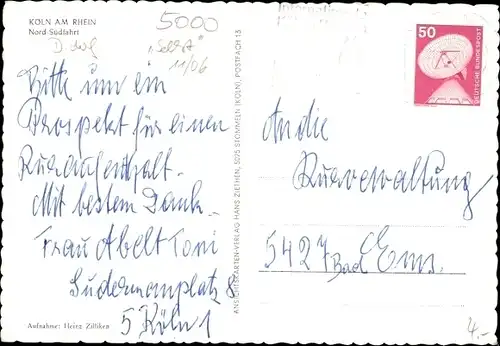 KÖLN AM RHEIN
Nord-Südfahrt
5000
11/06
Bitte um ein
Prospekt für einen
Kuraufenthalt.
Mit bestem Dank.
Frau Abelt Toni
Sudermanplatz 8
5 Köln 1
Aufnahme: Heinz Zilliken
ANSICHTKARTEN-VERLAG HANS ZETHEN, 5025 STOMMELN (KÖLN), POSTFACH 13
50
DEUTSCHE BUNDESPOST
An die
Kurverwaltung
5427 Bad Ems.
4.-